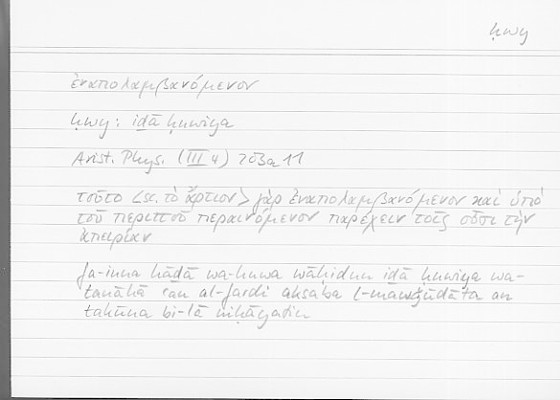 ḥwy
ἐναπολαμβανόμενον
ḥwy: iḏā ḥuwiya
Arist. Phys. (III 4) 203a11
τοῦτο <sc. τὸ ἄρτιον> γὰρ ἐναπολαμβανόμενον καὶ ὑπὸ
τοῦ περιττοῦ περαινόμενον παρέχειν τοῖς οὖσι τὴν
ἀπειρίαν
fa-inna hāḏā wa-huwa wāḥidun iḏā ḥuwiya wa-
tanāhā ʿan al-fardi aksaba l-mawǧūdāta an
takūna bi-lā nihāyatin